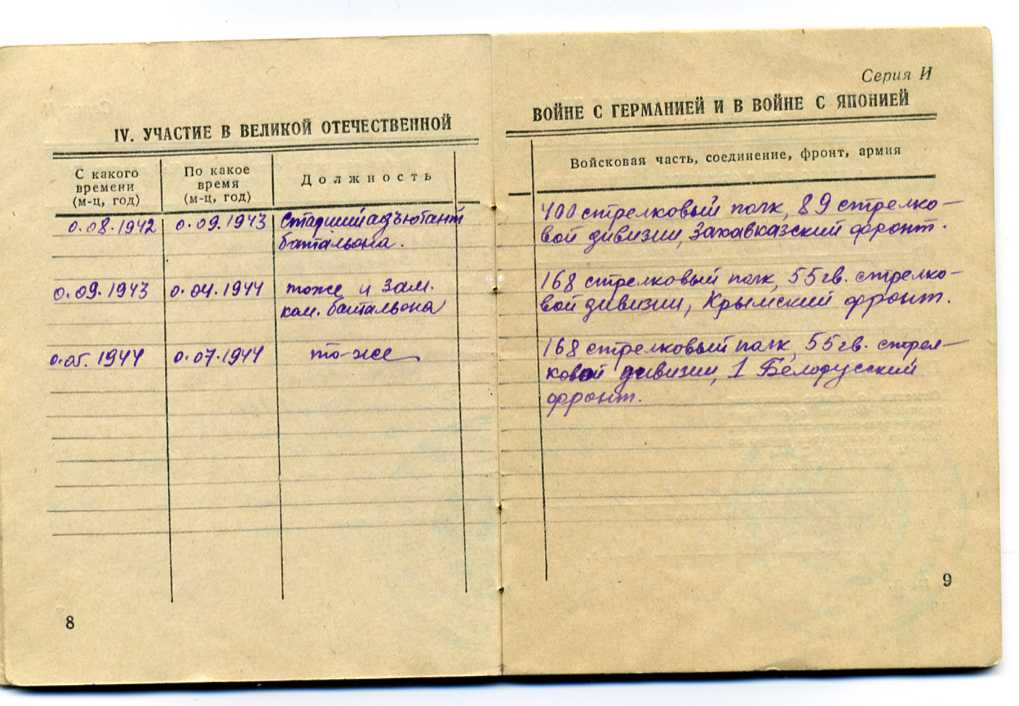 IV. УЧАСТИЕ В ВЕЛИКОЙ ОТЕЧЕСТВЕННОЙ
С какого времени (м-ц, год)
По какое время (м-ц, год)
Должность
0.08.1942 0.09.1943 Старший адъютант
батальона.
0.09.1943 0.04.1944 тоже и зам.
ком. батальона
0.05.1944 0.07.1944 то-же
8
Серия И
ВОЙНЕ С ГЕРМАНИЕЙ И В ВОЙНЕ С ЯПОНИЕЙ
Войсковая часть, соединение, фронт, армия
400 стрелковый полк, 89 стрелко-
вой дивизии, Закавказский фронт.
168 стрелковый полк, 55 гв. стрелко-
вой дивизии, Крымский фронт.
168 стрелковый полк, 55 гв. стрел-
ковой дивизии, 1 Белорусский
фронт.
9